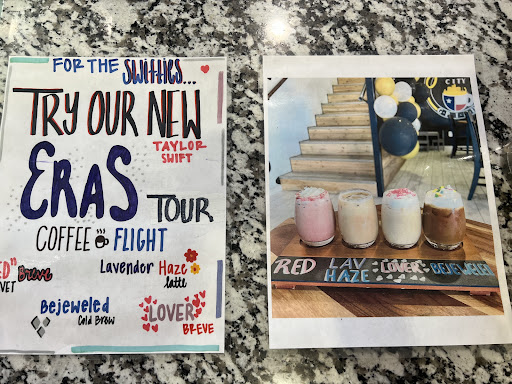 FOR THE SWIFTIES...
TRY OUR NEW
TAYLOR
SWIFT
ERAS TOUR
COFFEE FLIGHT
ED" Breve
VET
Lavender Haze
latte
Bejeweled
Cold Brew
LOVER
BREVE
CITY
RED LAV HAZE LOVER BEJEWELED